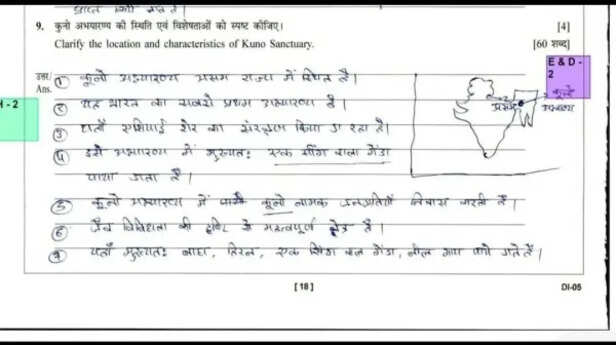 9. कुनो अभयारण्य की स्थिति एवं विशेषताओं को स्पष्ट कीजिए। [4]
Clarify the location and characteristics of Kuno Sanctuary. [60 शब्द]
E & D - 2
उत्तर
Ans.
H - 2
① कूनो अभयारण्य असम राज्य में स्थित है।
② यह भारत का सबसे प्रथम अभ्यारण्य है।
③ यहाँ एशियाई शेर का संरक्षण किया जा रहा है।
④ इसे अभ्यारण्य में मुख्यतः एक सींग वाला गेंडा
पाया जाता है।
⑤ कूनो अभ्यारण्य में कूनो नामक जनजातियाँ निवास करती है।
⑥ जैव विविधता की दृष्टि से महत्वपूर्ण क्षेत्र है।
यहाँ मुख्यतः बाघ, हिरन, एक गेंडा, नील गाय पाये जाते हैं।
असम
कूनो
अभ्यारण्य
[ 18 ]
DI-05